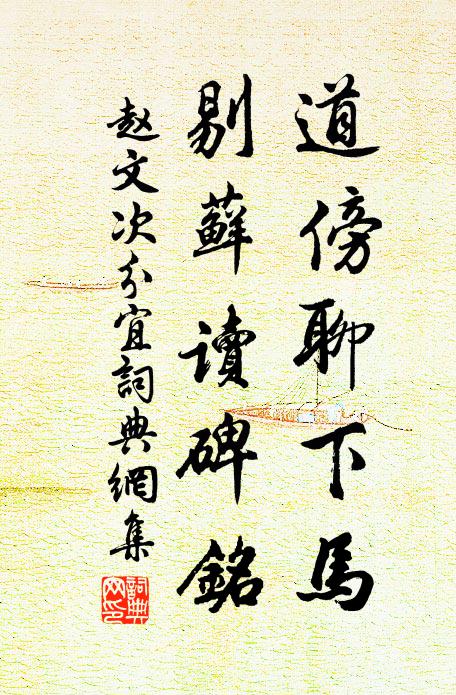 道傍聊下馬
剔蘚讀碑銘
赵文次分宜詞典網集
詞典网印